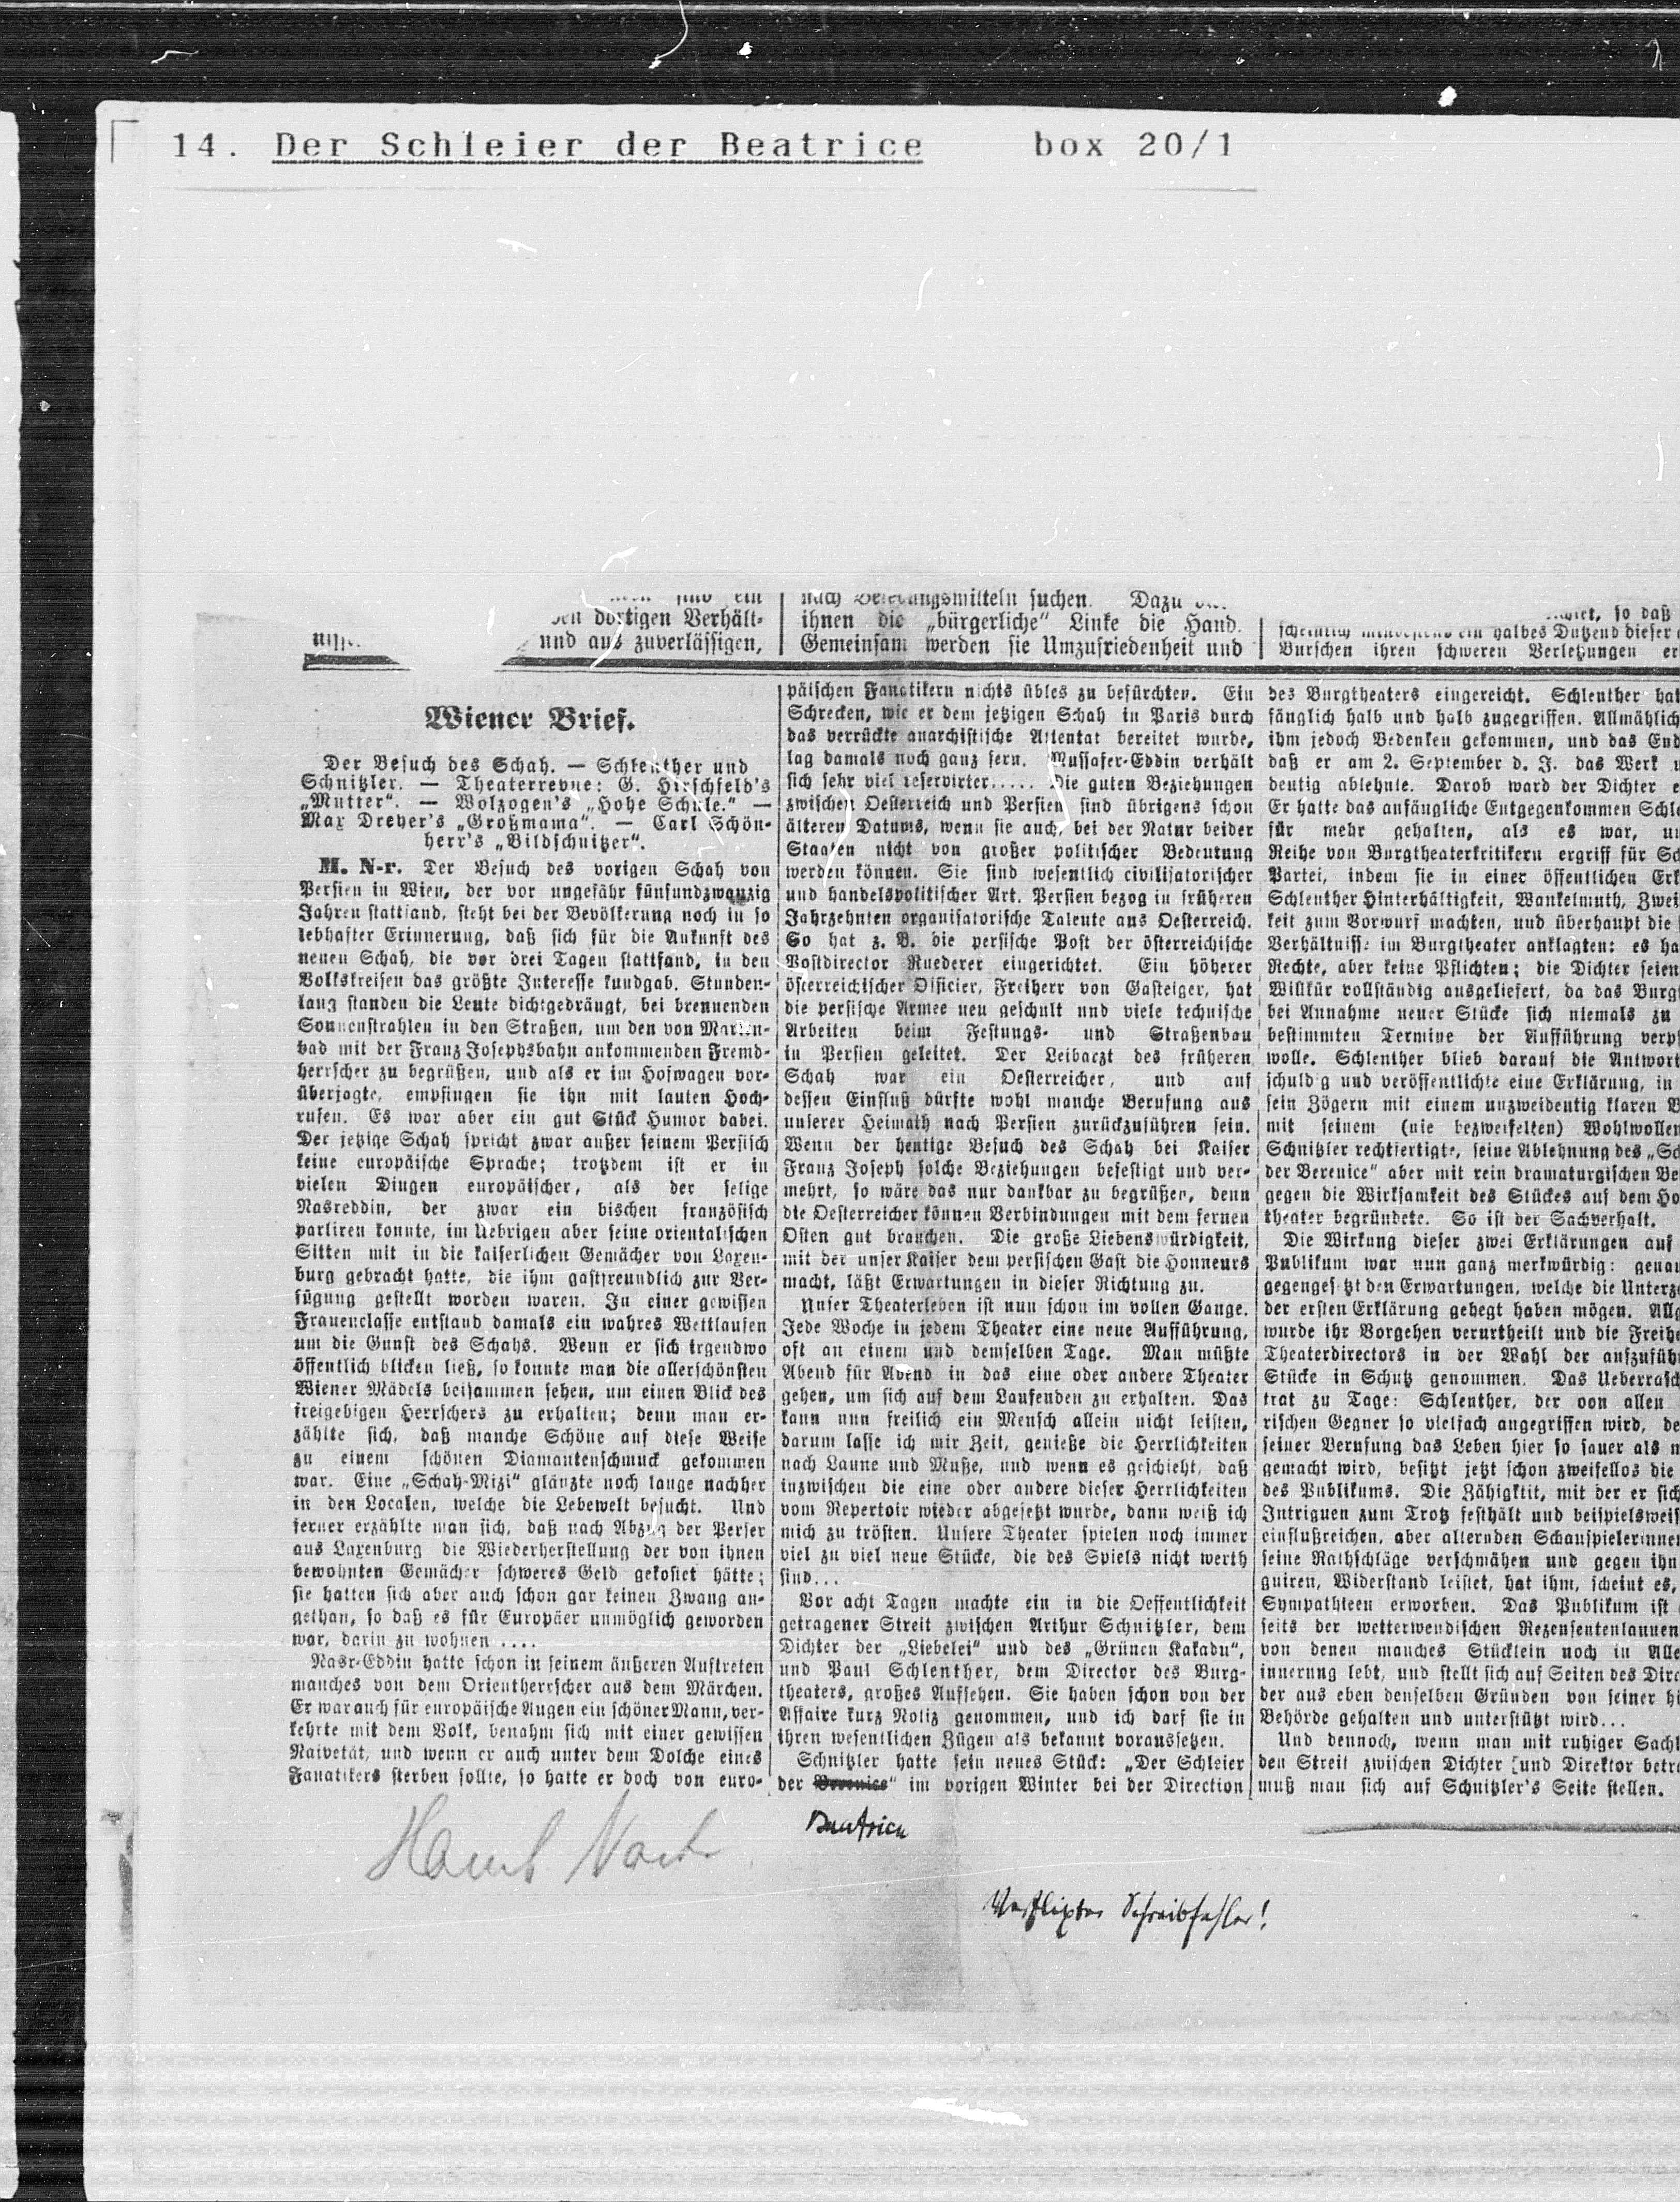 14. Der Schleier der Beatrice box 20/1
sind ein
den dortigen Verhält-
und aus zuverlässigen,
nach suchen. Dazu
ihnen die „bürgerliche“ Linke die Hand.
Gemeinsam werden sie Unzufriedenheit und
so daß
ein halbes Dutzend dieser
Burschen ihren schweren Verletzungen er
Wiener Brief.
Der Besuch des Schah. — Schlenther und
Schnitzler. — Theaterrevue: G. Hirschfeld's
„Mutter“. — Wolzogen's „Hohe Schule.“ —
Max Dreyer's „Großmama“. — Carl Schön-
herr's „Bildschnitzer“.
M. N-r. Der Besuch des vorigen Schah von
Persien in Wien, der vor ungefähr fünfundzwanzig
Jahren stattfand, steht bei der Bevölkerung noch in so
lebhafter Erinnerung, daß sich für die Ankunft des
neuen Schah, die vor drei Tagen stattfand, in den
Volkskreisen das größte Interesse kundgab. Stunden-
lang standen die Leute dichtgedrängt, bei brennenden
Sonnenstrahlen in den Straßen, um den von Marien-
bad mit der Franz Josephsbahn ankommenden Fremd-
herrscher zu begrüßen, und als er im Hofwagen vor-
überjagte, empfingen sie ihn mit lauten Hoch-
rufen. Es war aber ein gut Stück Humor dabei.
Der jetzige Schah spricht zwar außer seinem Persisch
keine europäische Sprache; trotzdem ist er in
vielen Dingen europäischer, als der selige
Nasreddin, der zwar ein bischen französisch
parliren konnte, im Uebrigen aber seine orientalischen
Sitten mit in die kaiserlichen Gemächer von Laxen-
burg gebracht hatte, die ihm gastfreundlich zur Ver-
fügung gestellt worden waren. In einer gewissen
Frauenclasse entstand damals ein wahres Wettlaufen
um die Gunst des Schahs. Wenn er sich irgendwo
öffentlich blicken ließ, so konnte man die allerschönsten
Wiener Mädels beisammen sehen, um einen Blick des
freigebigen Herrschers zu erhalten; denn man er-
zählte sich, daß manche Schöne auf diese Weise
zu einem schönen Diamantenschmuck gekommen
war. Eine „Schah-Mizi“ glänzte noch lange nachher
in den Localen, welche die Lebewelt besucht. Und
ferner erzählte man sich, daß nach Abzug der Perser
aus Laxenburg die Wiederherstellung der von ihnen
bewohnten Gemächer schweres Geld gekostet hätte;
sie hatten sich aber auch schon gar keinen Zwang an-
gethan, so daß es für Europäer unmöglich geworden
war, darin zu wohnen ....
Nasr-Eddin hatte schon in seinem äußeren Auftreten
manches von dem Orientherrscher aus dem Märchen.
Er war auch für europäische Augen ein schöner Mann, ver-
kehrte mit dem Volk, benahm sich mit einer gewissen
Naivetät, und wenn er auch unter dem Dolche eines
Fanatikers sterben sollte, so hatte er doch von euro-
päischen Fanatikern nichts übles zu befürchten. Ein
Schrecken, wie er dem jetzigen Schah in Paris durch
das verrückte anarchistische Attentat bereitet wurde,
lag damals noch ganz fern. Mussafer-Eddin verhält
sich sehr viel reservirter..... Die guten Beziehungen
zwischen Oesterreich und Persien sind übrigens schon
älteren Datums, wenn sie auch, bei der Natur beider
Staaten nicht von großer politischer Bedeutung
werden können. Sie sind wesentlich civilisatorischer
und handelspolitischer Art. Persien bezog in früheren
Jahrzehnten organisatorische Talente aus Oesterreich.
So hat z. B. die persische Post der österreichische
Postdirector Ruederer eingerichtet. Ein höherer
österreichischer Officier, Freiherr von Gasteiger, hat
die persische Armee neu geschult und viele technische
Arbeiten beim Festungs- und Straßenbau
in Persien geleitet. Der Leibarzt des früheren
Schah war ein Oesterreicher, und auf
dessen Einfluß dürfte wohl manche Berufung aus
unserer Heimath nach Persien zurückzuführen sein.
Wenn der heutige Besuch des Schah bei Kaiser
Franz Joseph solche Beziehungen befestigt und ver-
mehrt, so wäre das nur dankbar zu begrüßen, denn
die Oesterreicher können Verbindungen mit dem fernen
Osten gut brauchen. Die große Liebenswürdigkeit,
mit der unser Kaiser dem persischen Gast die Honneurs
macht, läßt Erwartungen in dieser Richtung zu.
Unser Theaterleben ist nun schon im vollen Gange.
Jede Woche in jedem Theater eine neue Aufführung,
oft an einem und demselben Tage. Man müßte
Abend für Abend in das eine oder andere Theater
gehen, um sich auf dem Laufenden zu erhalten. Das
kann nun freilich ein Mensch allein nicht leisten,
darum lasse ich mir Zeit, genieße die Herrlichkeiten
nach Laune und Muße, und wenn es geschieht, daß
inzwischen die eine oder andere dieser Herrlichkeiten
vom Repertoir wieder abgesetzt wurde, dann weiß ich
mich zu trösten. Unsere Theater spielen noch immer
viel zu viel neue Stücke, die des Spiels nicht werth
sind...
Vor acht Tagen machte ein in die Oeffentlichkeit
getragener Streit zwischen Arthur Schnitzler, dem
Dichter der „Liebelei“ und des „Grünen Kakadu“,
und Paul Schlenther, dem Director des Burg-
theaters, großes Aufsehen. Sie haben schon von der
Affaire kurz Notiz genommen, und ich darf sie in
ihren wesentlichen Zügen als bekannt voraussetzen.
Schnitzler hatte sein neues Stück: „Der Schleier
der Berenice“ im vorigen Winter bei der Direction
des Burgtheaters eingereicht. Schlenther hat
fänglich halb und halb zugegriffen. Allmählich
ihm jedoch Bedenken gekommen, und das End
daß er am 2. September d. J. das Werk u
deutig ablehnte. Darob ward der Dichter e
Er hatte das anfängliche Entgegenkommen Schle
für mehr gehalten, als es war, un
Reihe von Burgtheaterkritikern ergriff für Sc
Partei, indem sie in einer öffentlichen Erk
Schlenther Hinterhältigkeit, Wankelmuth, Zwei
keit zum Vorwurf machten, und überhaupt die
Verhältnisse im Burgtheater anklagten: es ha
Rechte, aber keine Pflichten; die Dichter seien
Willkür vollständig ausgeliefert, da das Burgt
bei Annahme neuer Stücke sich niemals zu
bestimmten Termine der Aufführung verpf
wolle. Schlenther blieb darauf die Antwort
schuldig und veröffentlichte eine Erklärung, in
sein Zögern mit einem unzweideutig klaren B
mit seinem (nie bezweifelten) Wohlwollen
Schnitzler rechtfertigte, seine Ablehnung des „Sc
der Berenice“ aber mit rein dramaturgischen Be
gegen die Wirksamkeit des Stückes auf dem Ho
theater begründete. So ist der Sachverhalt.
Die Wirkung dieser zwei Erklärungen auf
Publikum war nun ganz merkwürdig: genau
gegengesetzt den Erwartungen, welche die Unterz
der ersten Erklärung gehegt haben mögen. Allg
wurde ihr Vorgehen verurtheilt und die Freihe
Theaterdirectors in der Wahl der aufzuführ
Stücke in Schutz genommen. Das Ueberrasch
trat zu Tage: Schlenther, der von allen
rischen Gegner so vielfach angegriffen wird, de
seiner Berufung das Leben hier so sauer als m
gemacht wird, besitzt jetzt schon zweifellos die
des Publikums. Die Zähigktit, mit der er sich
Intriguen zum Trotz festhält und beispielsweis
einflußreichen, aber alternden Schauspielerinnen
seine Rathschläge verschmähen und gegen ihn
guiren, Widerstand leistet, hat ihm, scheint es,
Sympathieen erworben. Das Publikum ist
seits der wetterwendischen Rezensentenlaunen
von denen manches Stücklein noch in Alle
innerung lebt, und stellt sich auf Seiten des Dire
der aus eben denselben Gründen von seiner hö
Behörde gehalten und unterstützt wird...
Und dennoch, wenn man mit ruhiger Sachl
den Streit zwischen Dichter und Direktor betra
muß man sich auf Schnitzler's Seite stellen.
Beatrice
Verflixter Schreibfehler!